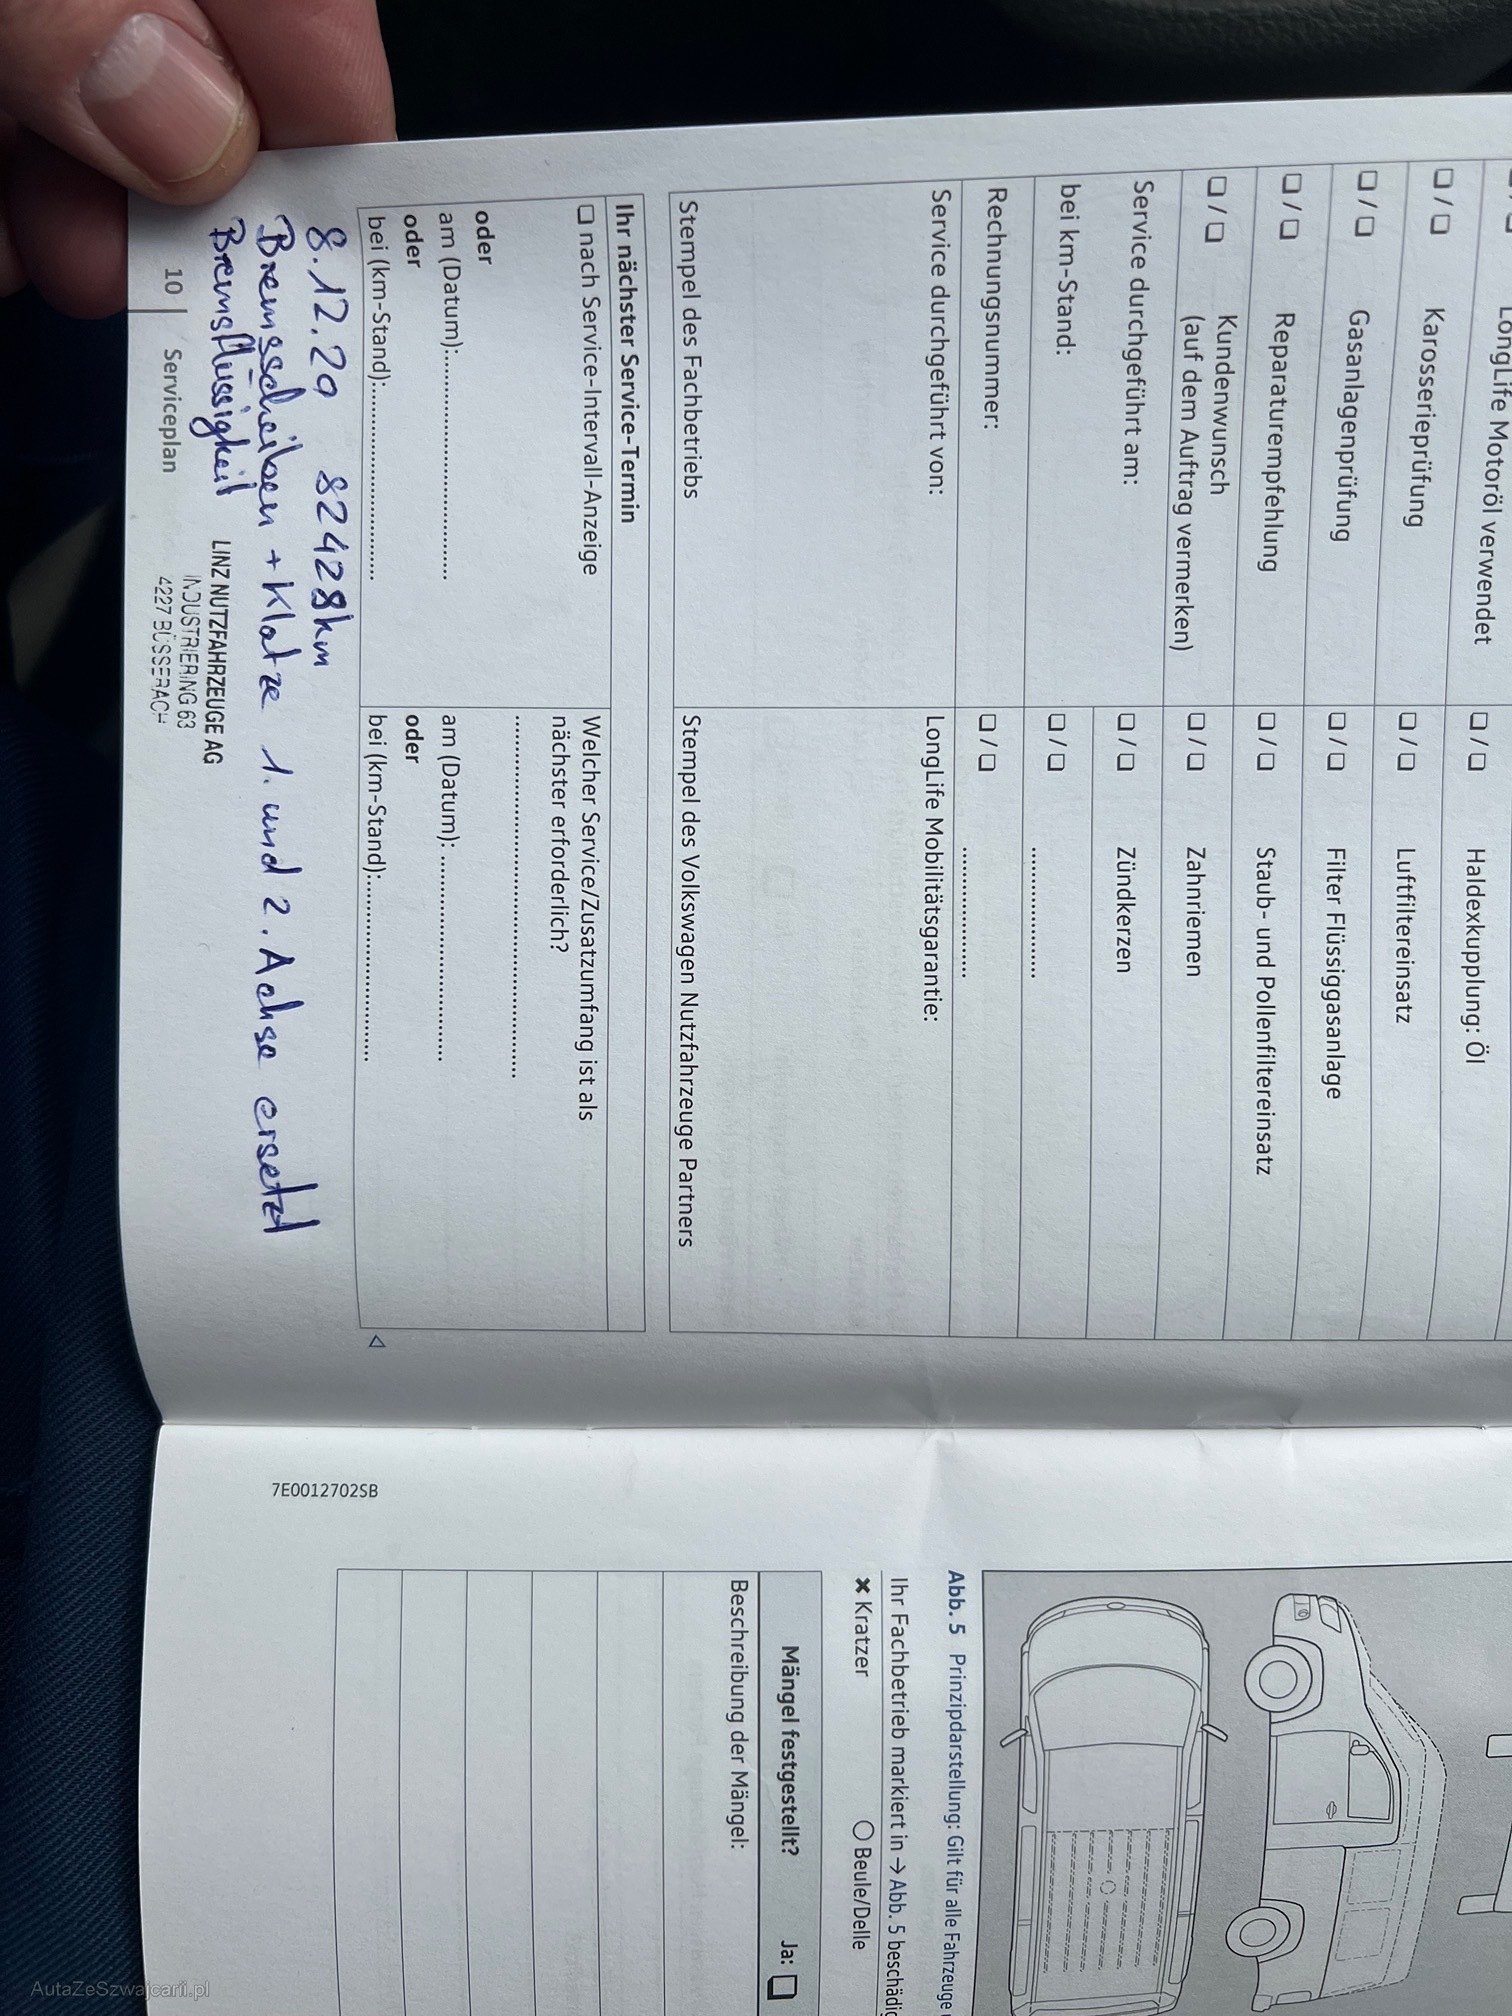 LongLife Motoröl verwendet
❑ / ❑ Karosserieprüfung
❑ / ❑ Gasanlagenprüfung
❑ / ❑ Reparaturempfehlung
❑ / ❑ Kundenwunsch
(auf dem Auftrag vermerken)
❑ / ❑ Haldexkupplung: Öl
❑ / ❑ Luftfiltereinsatz
❑ / ❑ Filter Flüssiggasanlage
❑ / ❑ Staub- und Pollenfiltereinsatz
❑ / ❑ Zahnriemen
❑ / ❑ Zündkerzen
❑ / ❑ ..................
❑ / ❑ ..................
Service durchgeführt am:
bei km-Stand:
Rechnungsnummer:
Service durchgeführt von:
LongLife Mobilitätsgarantie:
Stempel des Fachbetriebs
Stempel des Volkswagen Nutzfahrzeuge Partners
Ihr nächster Service-Termin
❑ nach Service-Intervall-Anzeige
oder
am (Datum):..............................
oder
bei (km-Stand):..............................
Welcher Service/Zusatzumfang ist als
nächster erforderlich?
..................................................
am (Datum): ..............................
oder
bei (km-Stand):..............................
8.12.20 82428km
Bremsscheiben + Klötze 1. und 2. Achse ersetzt
Bremsflüssigkeit
LINZ NUTZFAHRZEUGE AG
INDUSTRIERING 63
4227 BÜSSERACH
10 Serviceplan
Abb. 5 Prinzipdarstellung: Gilt für alle Fahrzeuge
Ihr Fachbetrieb markiert in → Abb. 5
✖ Kratzer ○ Beule/Delle
Mängel festgestellt? Ja: ❑
Beschreibung der Mängel:
7E0012702SB
AutaZeSzwajcarii.pl